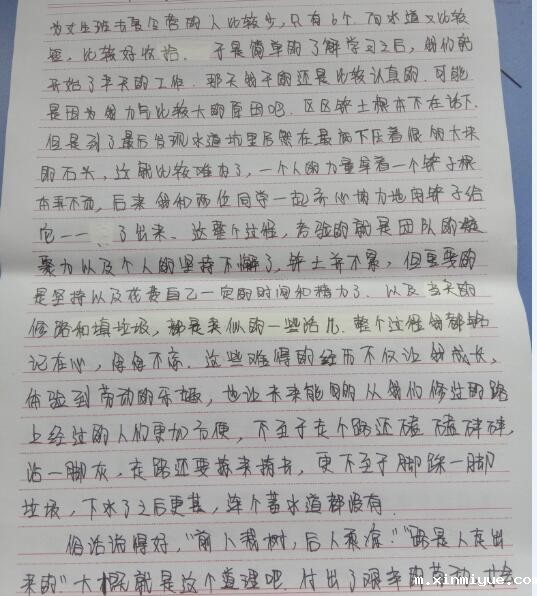 为女生班去复合营的人比较少，只有6个.而水道又比较
短，比较好收拾. 于是简单的了解学习之后，我们就
开始了半天的工作. 那天我干的还是比较认真的.可能
是因为我力气比较大的原因吧.区区铲土根本不在话下.
但是到了最后发现水道坑里居然在最底下压着很的大块
的石头，这就比较难办了，一个人的力量拿着一个铲子根
本弄不动，后来我和两位同学一起齐心协力地用铲子给
它一一 了出来、这整个过程，考验的就是团队的凝
聚力以及个人的坚持不懈了.铲土并不累，但重要的
是坚持以及花费自己一定的时间和精力了.以及当天的
修路和填垃圾，都是类似的一些活儿.整个过程我都铭
记在心，念念不忘.这些难得的经历不仅让我成长，
体验到劳动的乐趣，也让未来能用的从我们修过的路
上经过的人们更加方便，不至于走个路还磕磕碰碰，
沾一脚灰，走路还要拐来拐去，更不至于脚踩一脚
垃圾，下水了之后更甚，连个蓄水道都没有.
俗话说得好，"前人栽树，后人乘凉.""路是人走出
来的"大概就是这个道理吧.付出了艰辛的劳动，
m.xinmiyue.com